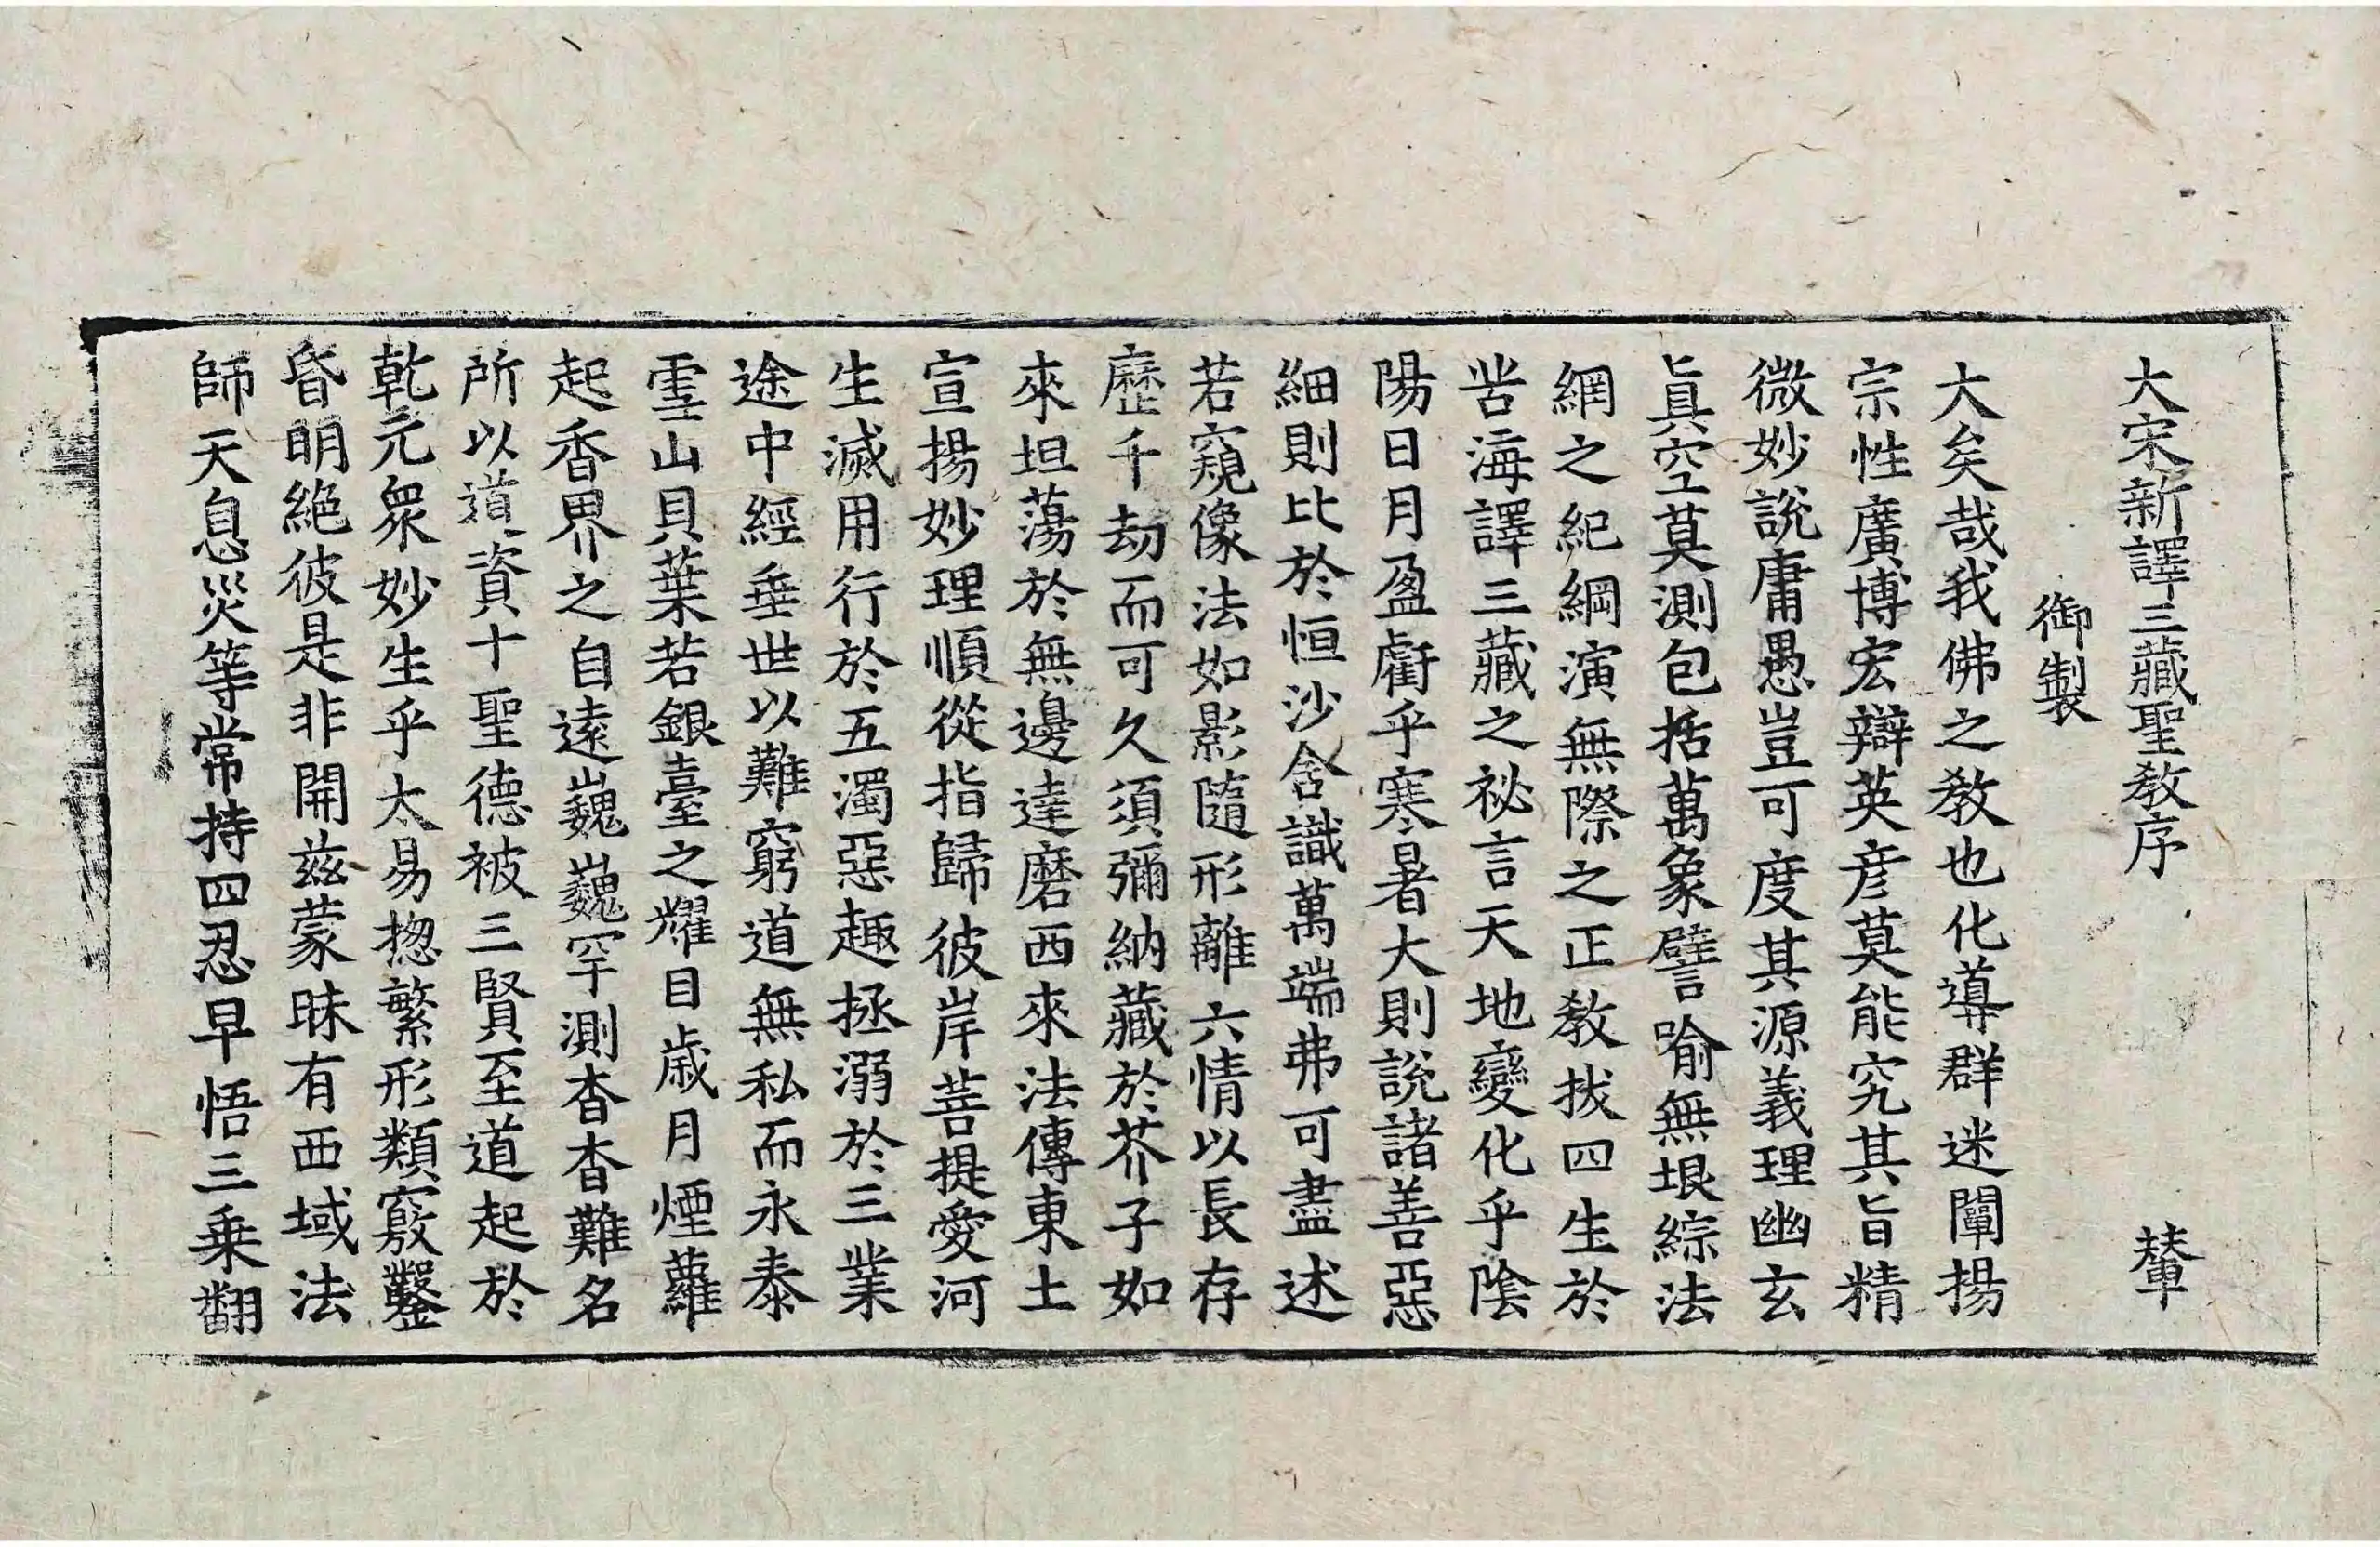 大宋新譯三藏聖教序 輦
御製
大矣哉我佛之教也化導群迷闡揚
宗性廣博宏辯英彥莫能究其旨精
微妙說庸愚豈可度其源義理幽玄
眞空莫測包括萬象譬喻無垠綜法
網之紀綱演無際之正教拔四生於
苦海譯三藏之祕言天地變化乎陰
陽日月盈虧乎寒暑大則說諸善惡
細則比於恒沙含識萬端弗可盡述
若窺像法如影隨形離六情以長存
歷千劫而可久須彌納藏於芥子如
來坦蕩於無邊達磨西來法傳東土
宣揚妙理順從指歸彼岸菩提愛河
生滅用行於五濁惡趣拯溺於三業
途中經垂世以難窮道無私而永泰
雪山貝葉若銀臺之耀目歲月煙蘿
起香界之自遠巍巍罕測杳杳難名
所以道資十聖德被三賢至道起於
乾元衆妙生乎太易揔繁形類竅鑿
昏明絕彼是非開茲蒙昧有西域法
師天息災等常持四忍早悟三乘翻